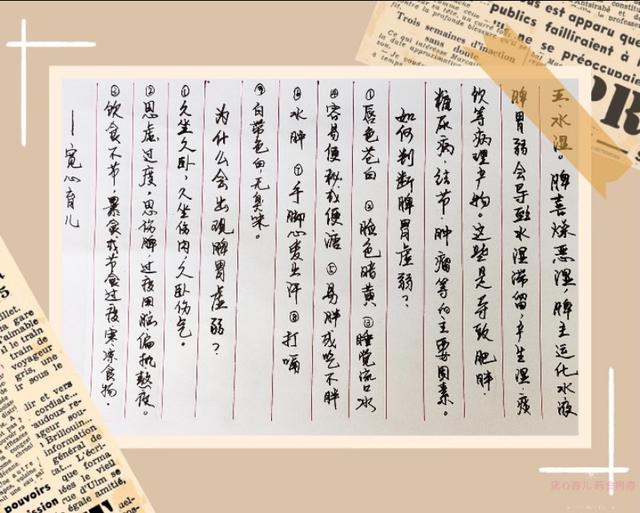 五、水湿。脾喜燥恶湿,脾主运化水液
脾胃弱会导致水湿滞留,产生湿.痰
饮等病理产物。这些是导致肥胖.
糖尿病.结节.肿瘤等的主要因素。
如何判断脾胃虚弱?
①唇色苍白 ②脸色暗黄 ③睡觉流口水
④容易便秘或便溏 ⑤易胖或吃不胖
⑥水肿 ⑦手脚心爱出汗 ⑧打嗝
⑨白带色白,无臭味。
为什么会出现脾胃虚弱?
①久坐久卧,久坐伤肉,久卧伤气。
②思虑过度。思伤脾,过度用脑偏执熬夜。
③饮食不节 暴食或节食过度 寒凉食物.
——宽心育儿
Trois semaines d'inaction
sans doute
us est apparu que
publics failliraient à
ne se préoccupaient
PR
pouvoirs